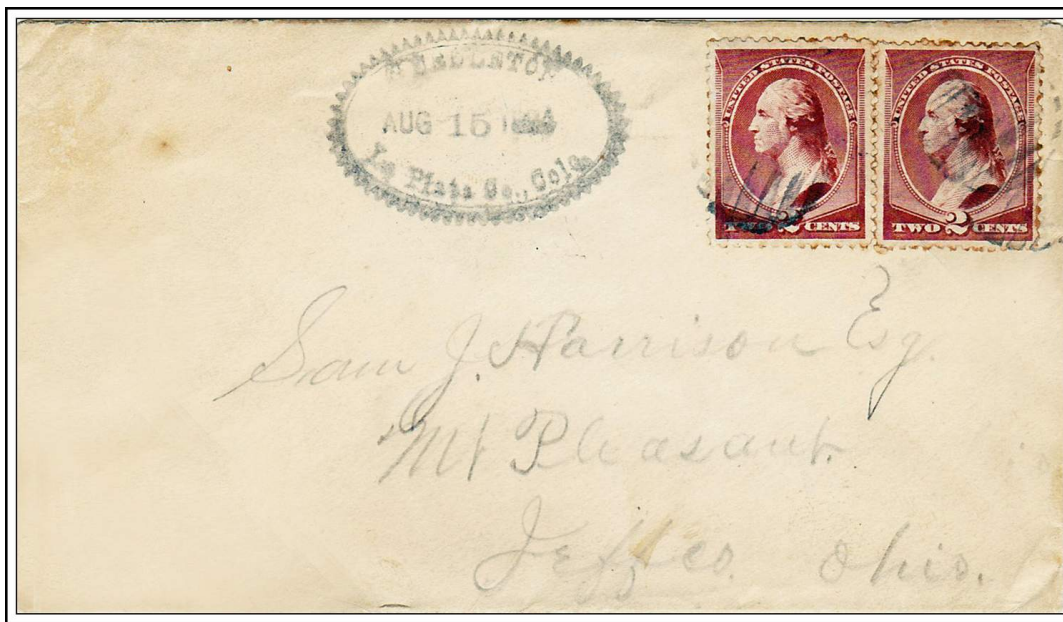 NEEDLETON
AUG 15
La Plata Co., Colo.
UNITED STATES POSTAGE
TWO 2 CENTS
UNITED STATES POSTAGE
TWO 2 CENTS
Sam J. Harrison Esq.
Mt Pleasant.
Jeff co. Ohio.